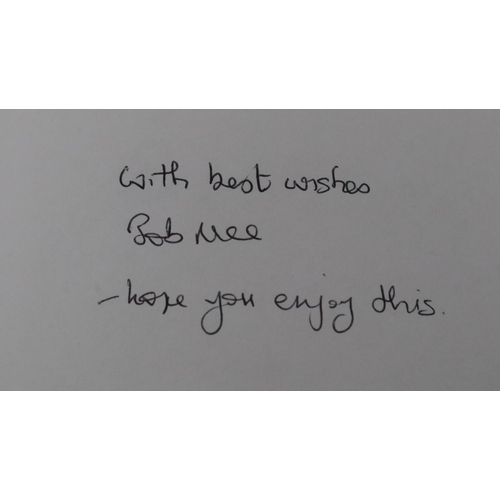 with best wishes
Bob Mee
- hope you enjoy this.